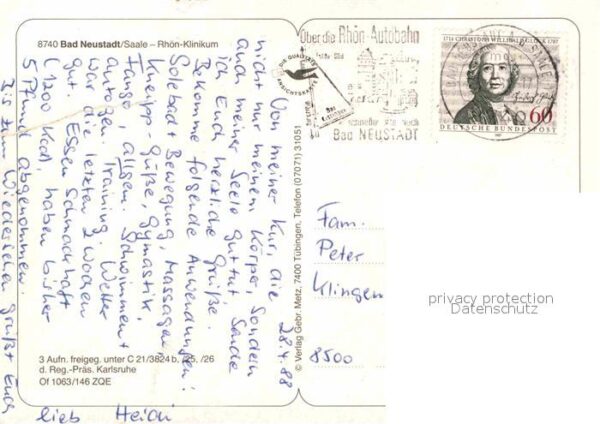 8740 Bad Neustadt/Saale – Rhön-Klinikum
28.4.88
Von meiner Kur, die
nicht nur meinem Körper, sondern
auch meiner Seele guttut, sende
ich Euch herzliche Grüße.
Bekomme folgende Anwendungen:
Solebad + Bewegung, Massagen,
Kneipp-Güße, Gymnastik,
Fango, allgem. Schwimmen +
autogen. Training. Wetter
war die letzten 2 Wochen
gut. Essen schmackhaft
(1200 Kcal, haben bisher
5 Pfund abgenommen.
Bis zum Wiedersehen grüßt Euch
lieb Heidi
3 Aufn. freigeg. unter C 21/3824 b, /25, /26
d. Reg.-Präs. Karlsruhe
Of 1063/146 ZQE
© Verlag Gebr. Metz, 7400 Tübingen, Telefon (07071) 31051
DIE QUALITÄTS
ANSICHTSKARTE
Über die Rhön-Autobahn
schneller nach
Bad NEUSTADT
1714 CHRISTOPH WILLIBALD GLUCK 1787
60
DEUTSCHE BUNDESPOST
Fam.
Peter
Klingen
8500
privacy protection
Datenschutz